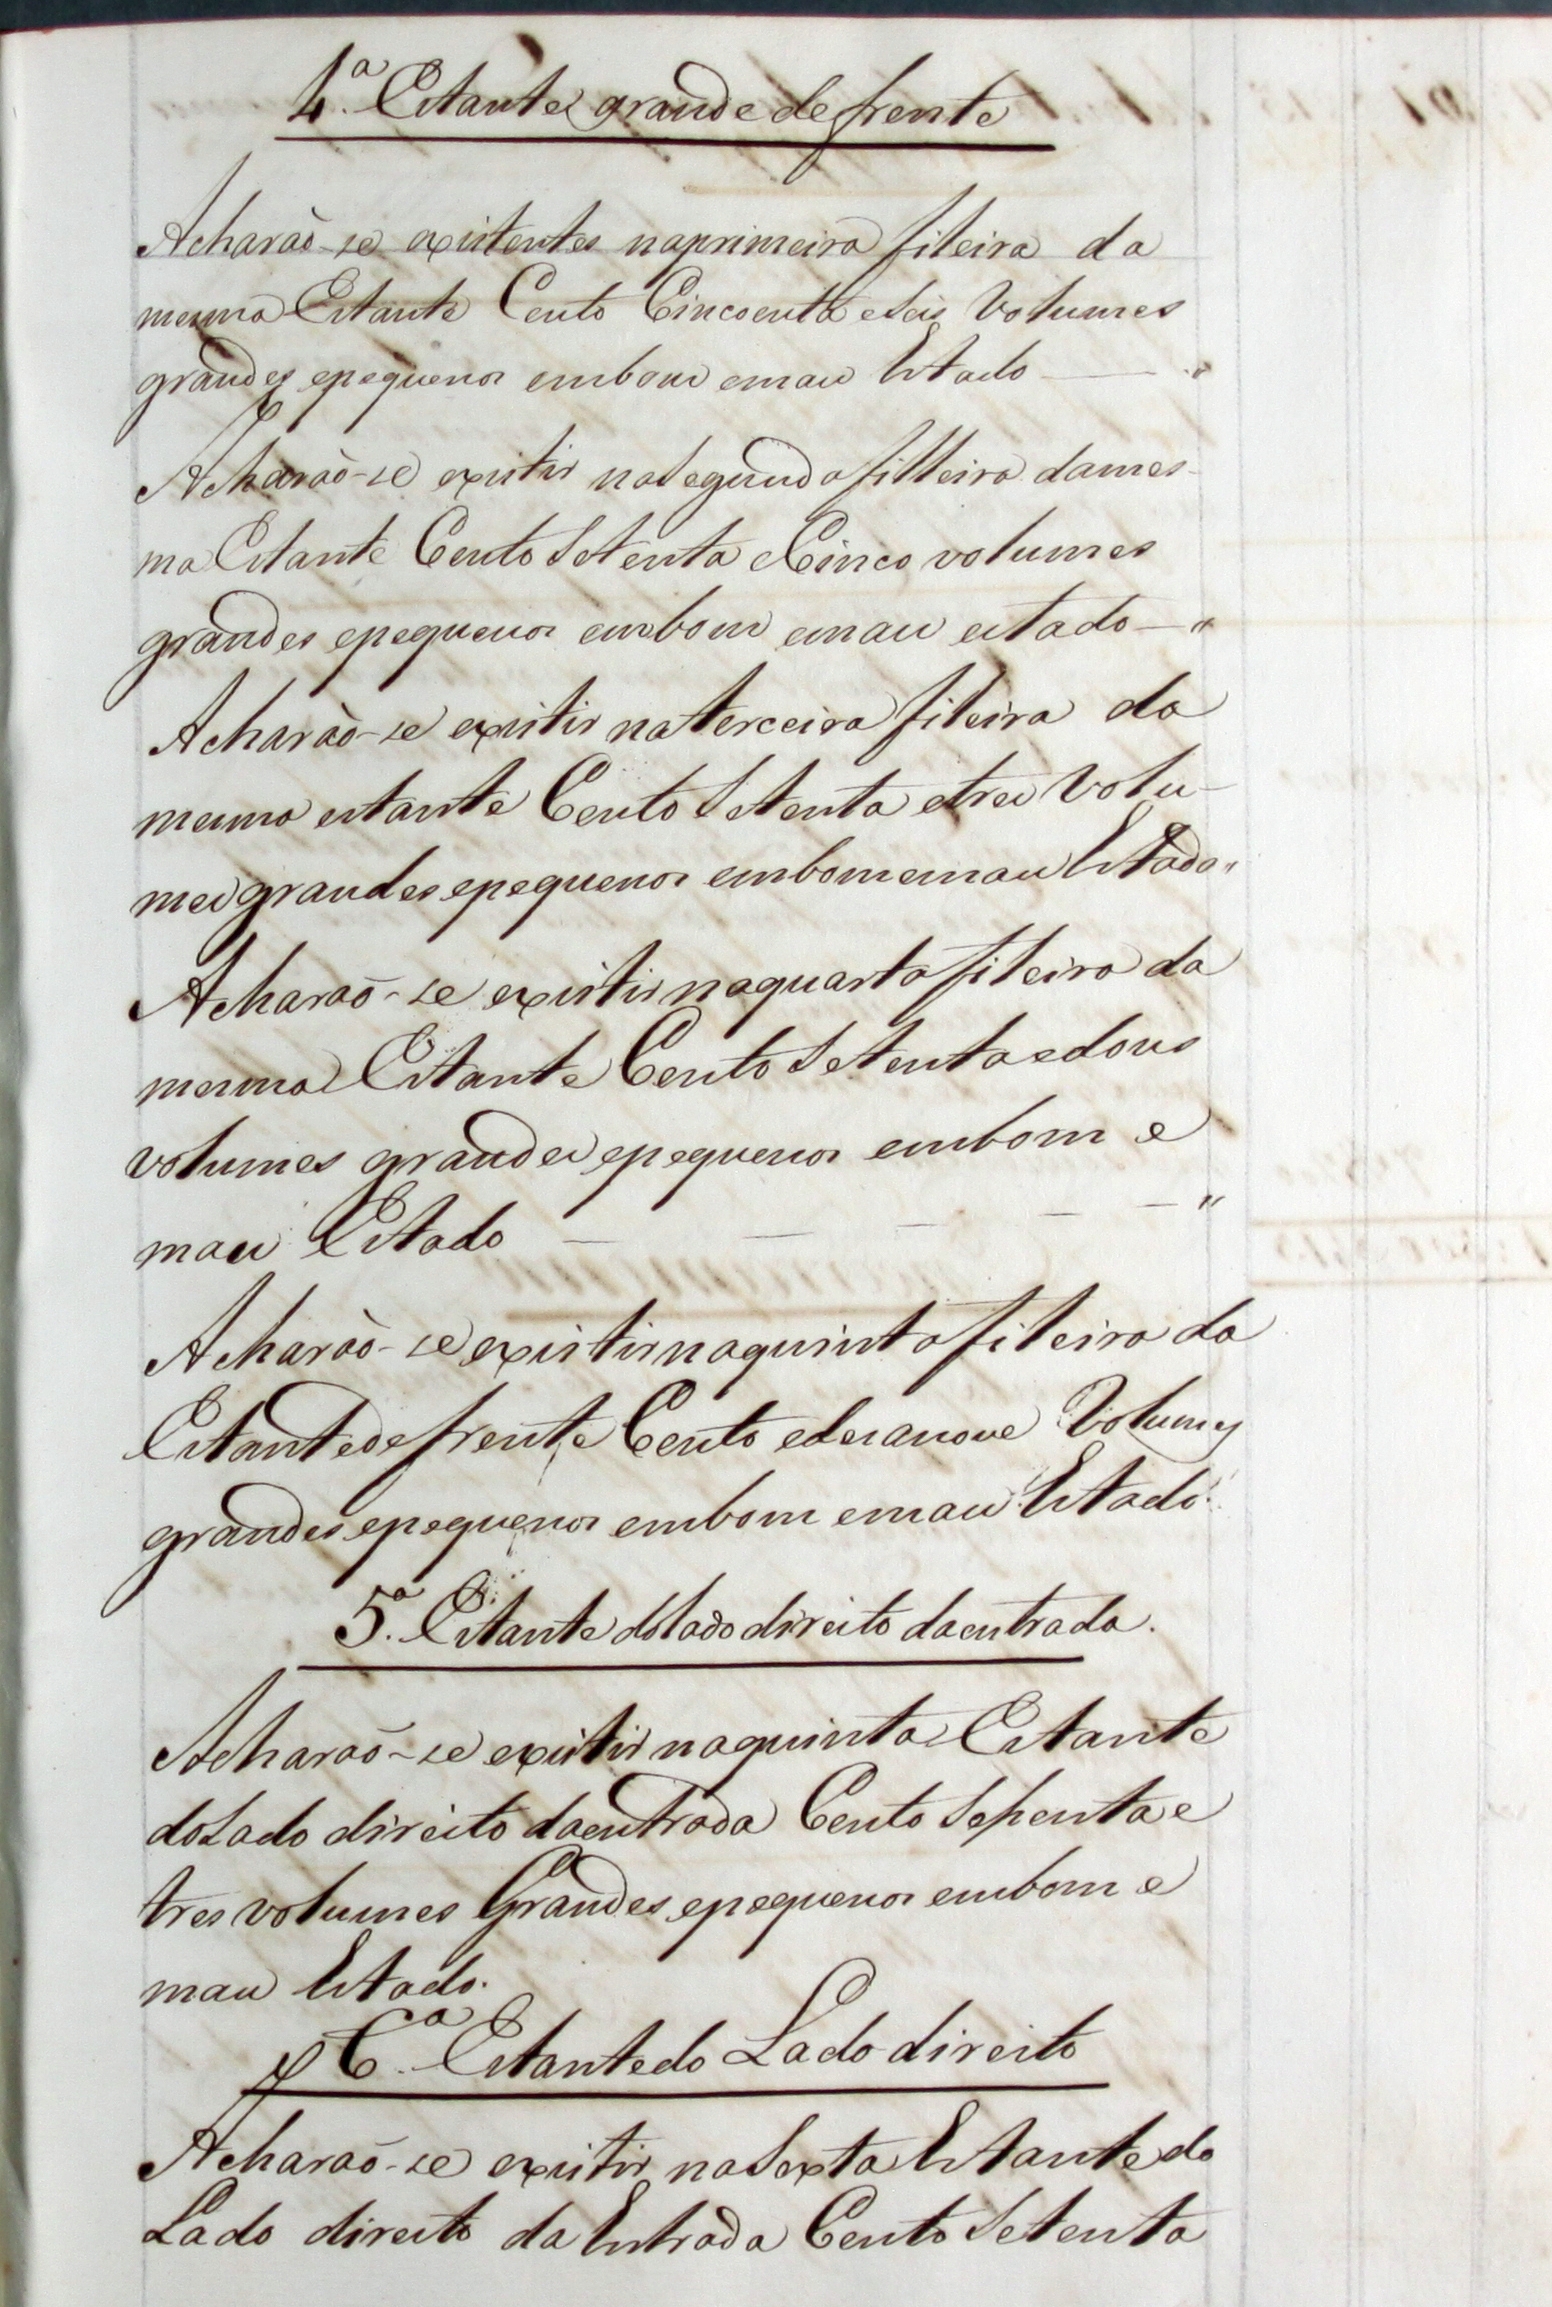 4.ª Estante grande de frente
Acharão-se existentes na primeira fileira da
mesma Estante Cento Cincoenta e Seis Volumes
grandes e pequenos em bom e mau Estado — "
Acharão-se existir na Segunda filleira da mes-
ma Estante Cento Setenta e Cinco volumes
grandes e pequenos em bom e mau estado — "
Acharão-se existir na terceira fileira da
mesma estante Cento Setenta e tres Volu-
mes grandes e pequenos em bom e mau Estado "
Acharão-se existir na quarta fileira da
mesma Estante Cento Setenta e dous
volumes grandes e pequenos em bom e
mau Estado — — — — — "
Acharão-se existir na quinta fileira da
Estante de frente Cento e desanove Volumes
grandes e pequenos em bom e mau Estado.
5.ª Estante do lado direito da entrada.
Acharão-se existir na quinta Estante
do Lado direito da entrada Cento Setenta e
tres volumes Grandes e pequenos em bom e
mau Estado.
6.ª Estante do Lado direito
Acharão-se existir na Sexta Estante do
Lado direito da Entrada Cento Setenta